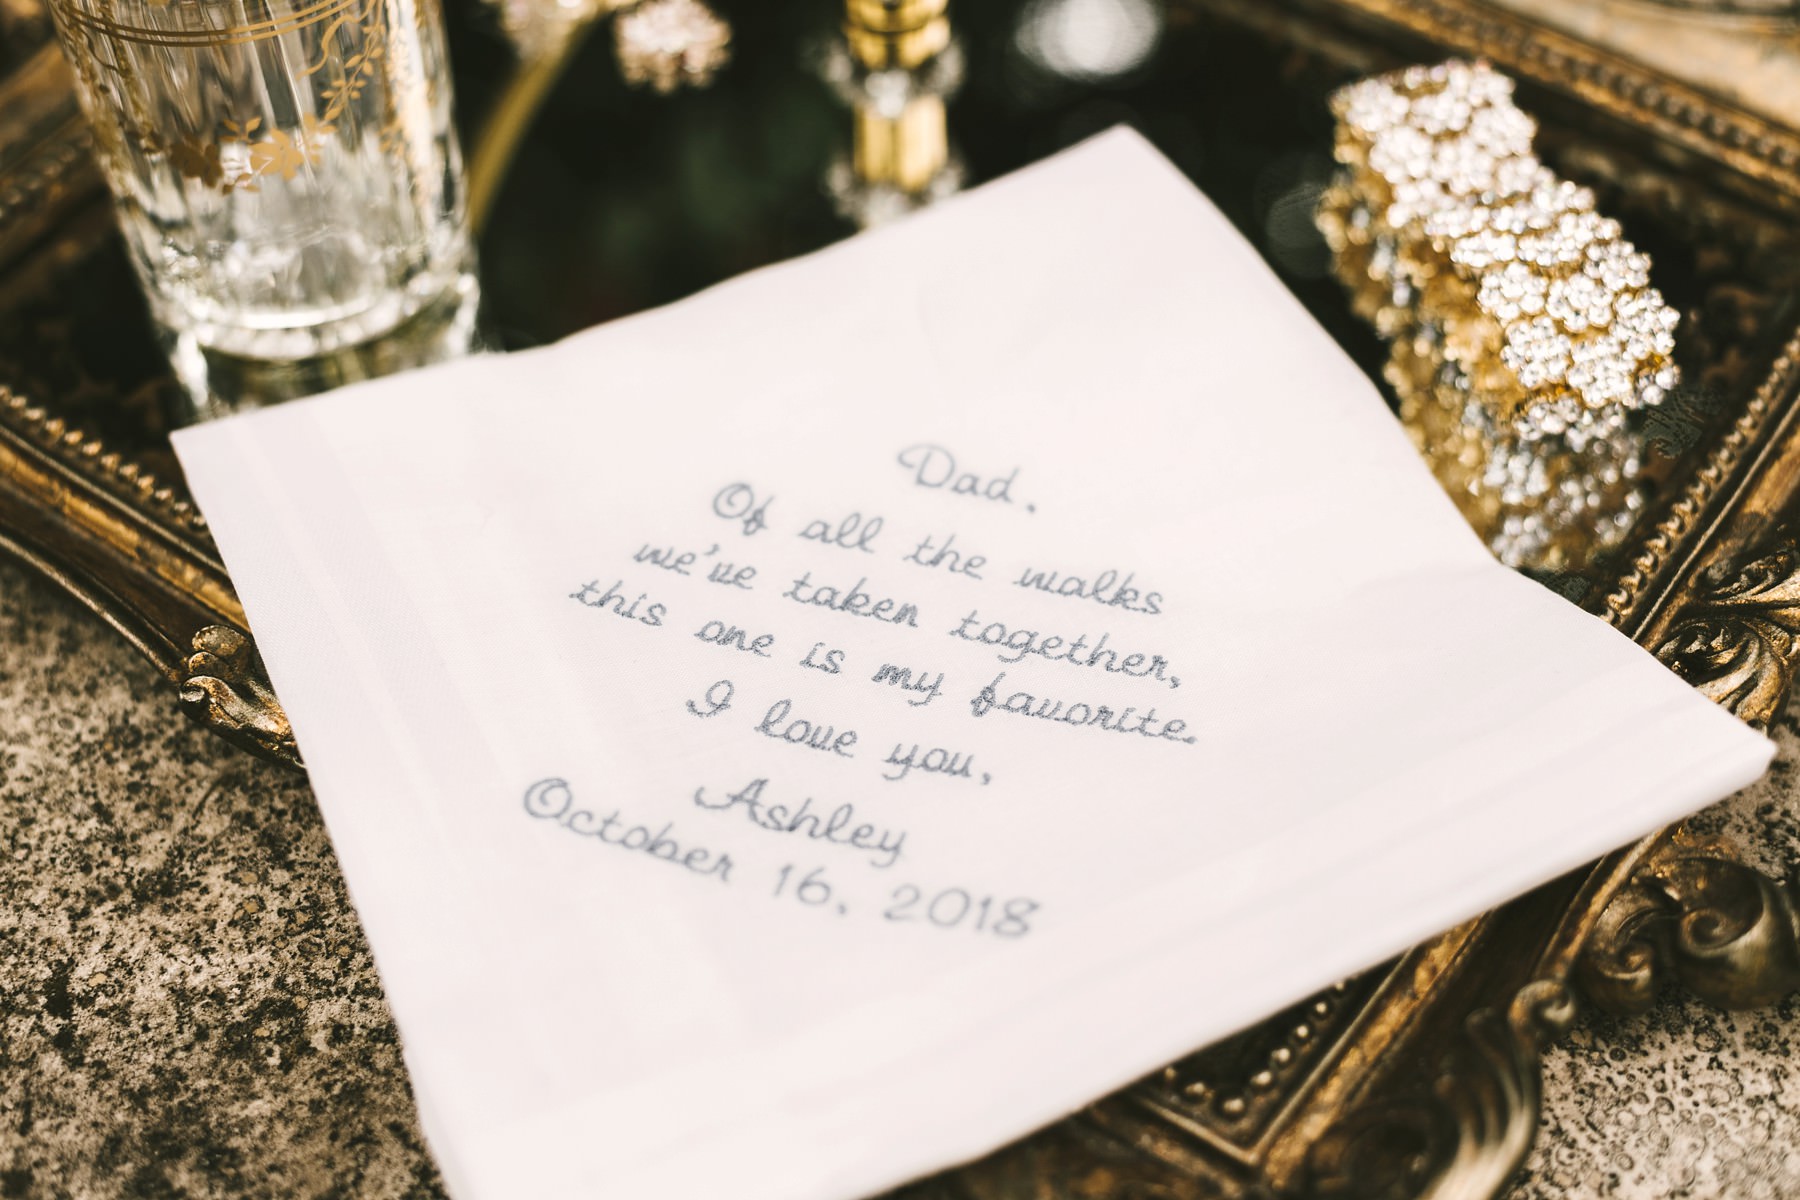 Dad,
Of all the walks
we've taken together,
this one is my favorite.
I love you,
Ashley
October 16, 2018